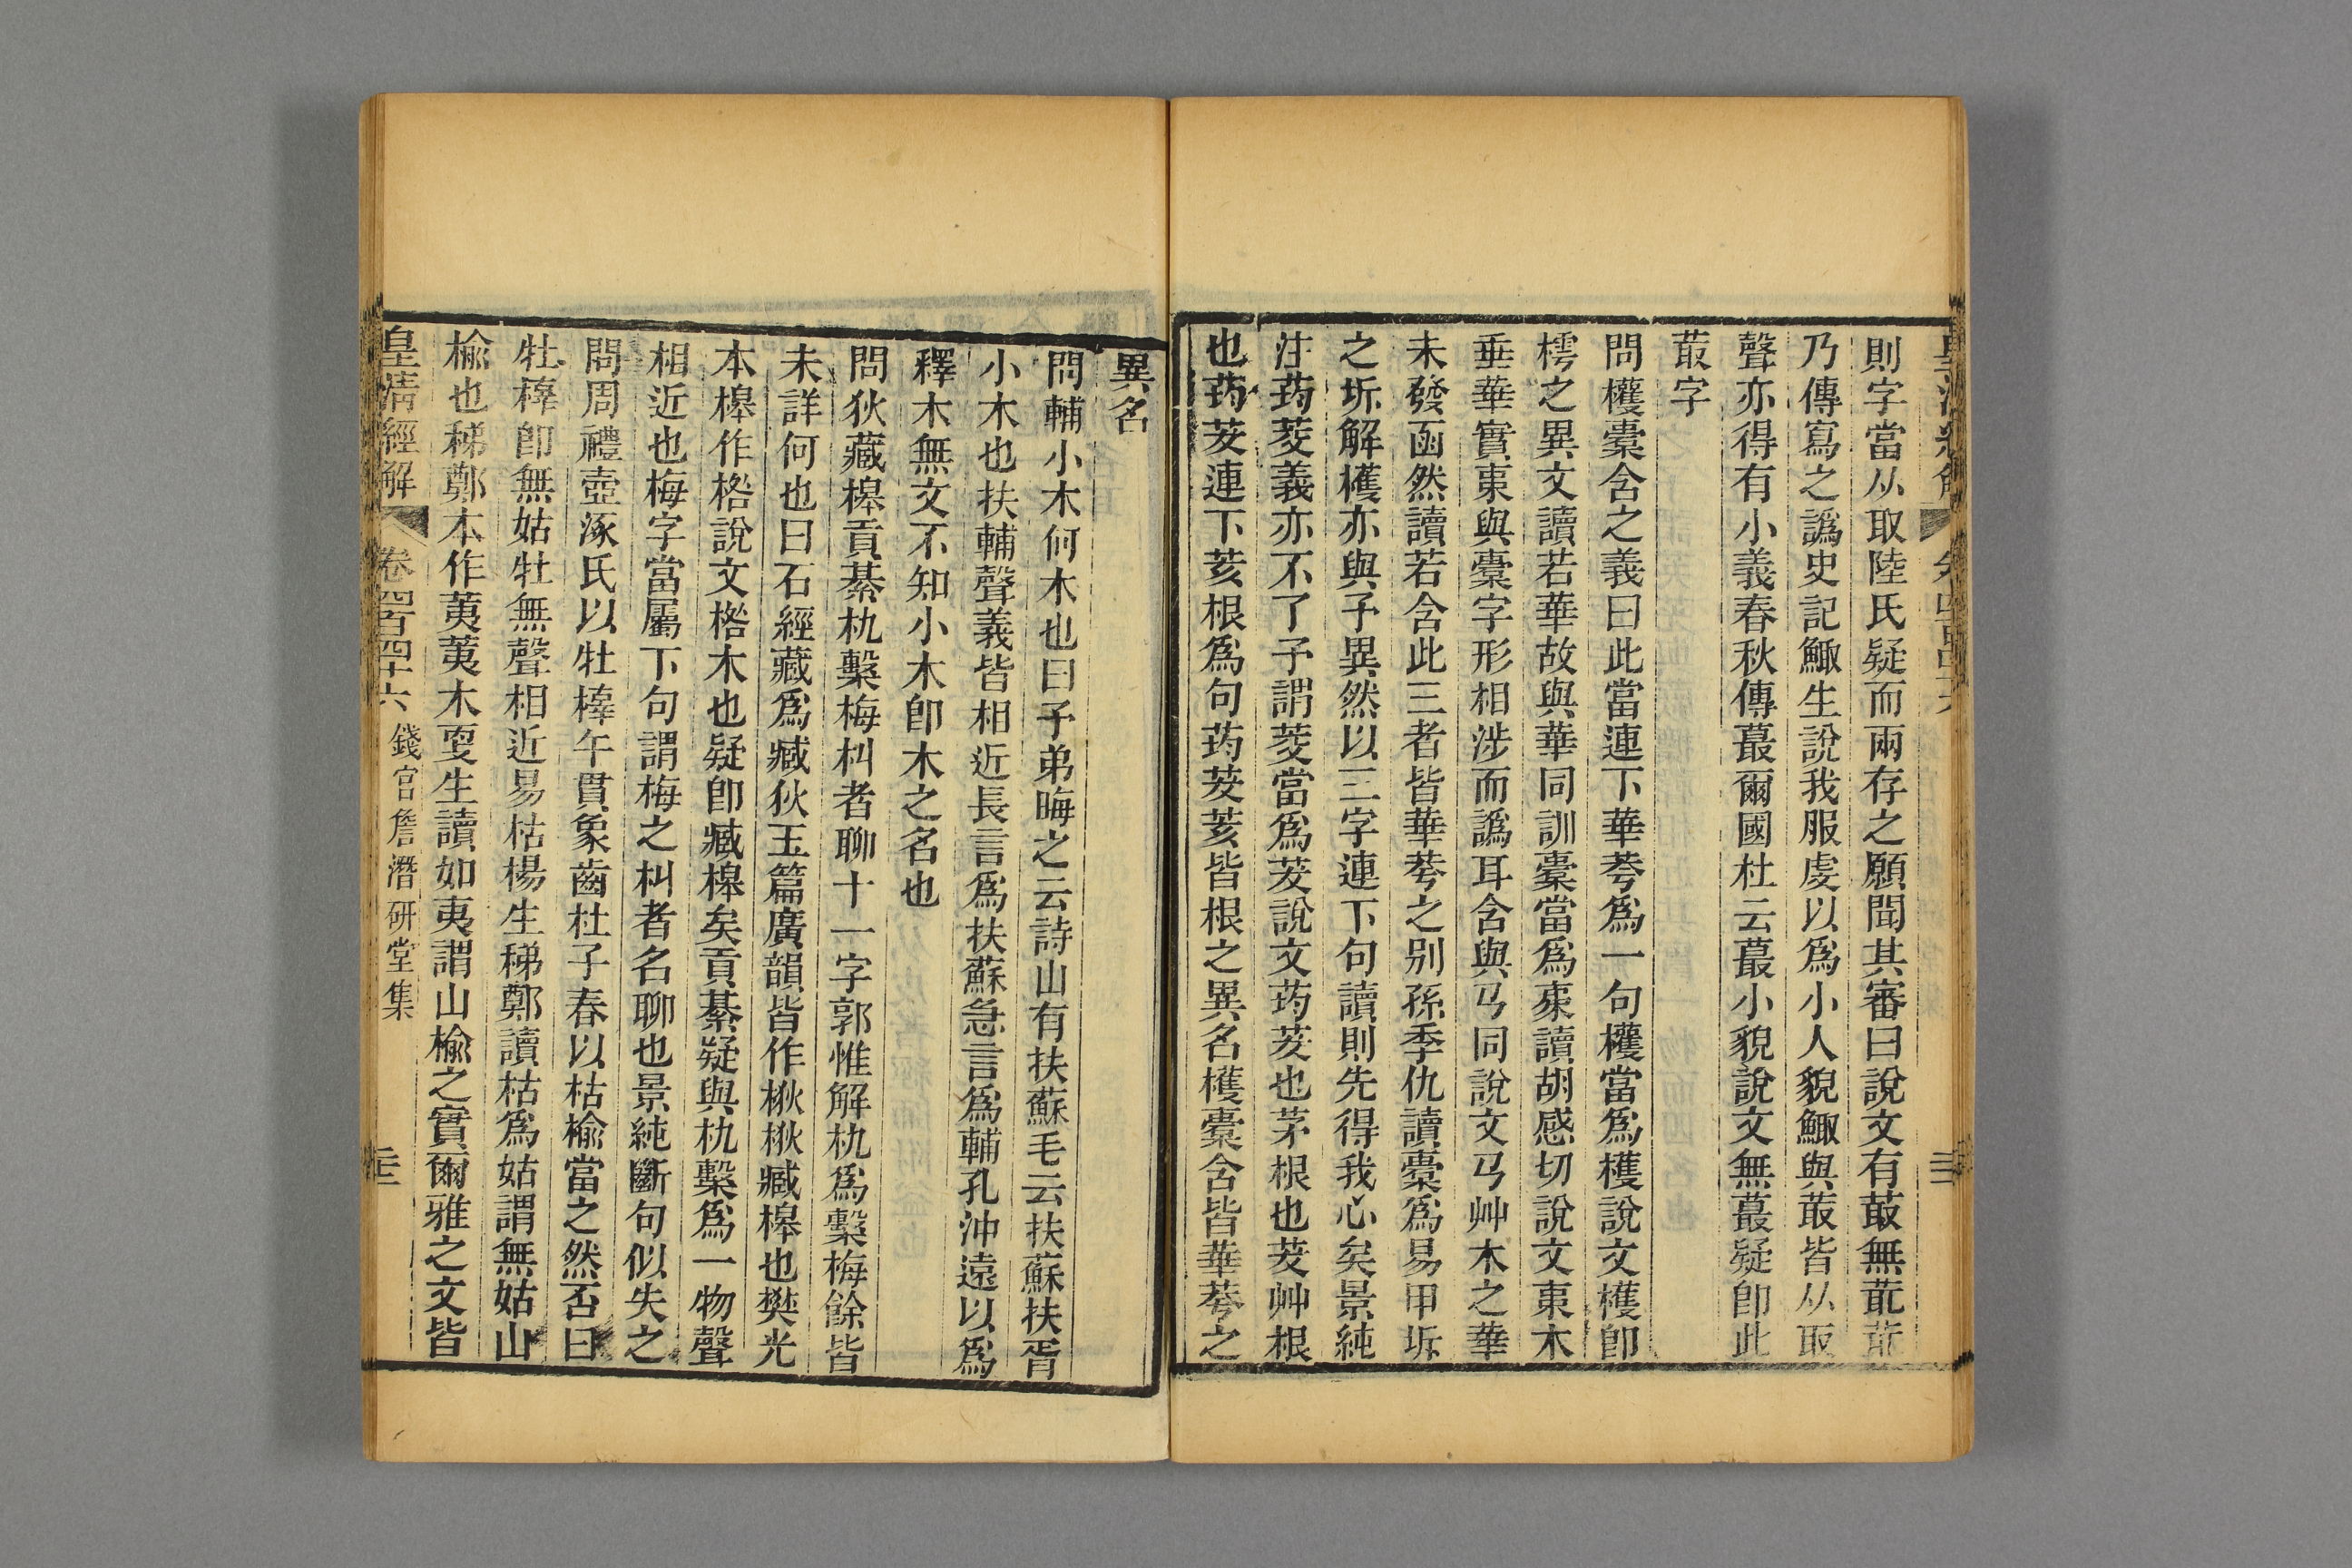 則字當从取陸氏疑而兩存之願聞其審曰說文有菆無蓛蓛
乃傳寫之譌史記鯫生說我服虔以爲小人貌鯫與菆皆从取
聲亦得有小義春秋傳蕞爾國杜云蕞小貌說文無蕞疑卽此
菆字
問欔橐含之義曰此當連下華荂爲一句欔當爲檴說文檴卽
樗之異文讀若華故與華同訓橐當爲㯥讀胡感切說文㯥木
垂華實㯥與橐字形相涉而譌耳含與㔾同說文㔾艸木之華
未發函然讀若含此三者皆華荂之别孫季仇讀橐爲易甲坼
之坼解檴亦與予異然以三字連下句讀則先得我心矣景純
注荺茭義亦不了予謂茭當爲茇說文荺茇也茅根也茇艸根
也荺茇連下荄根爲句荺茇荄皆根之異名檴橐含皆華荂之
異名
問輔小木何木也曰予弟晦之云詩山有扶蘇毛云扶蘇扶胥
小木也扶輔聲義皆相近長言爲扶蘇急言爲輔孔沖遠以爲
釋木無文不知小木卽木之名也
問狄藏槔貢綦杭檕梅朻者聊十一字郭惟解杭爲檕梅餘皆
未詳何也曰石經藏爲臧狄玉篇廣韻皆作楸楸臧槔也樊光
本槔作楁說文楁木也疑卽臧槔矣貢綦疑與杭檕爲一物聲
相近也梅字當屬下句謂梅之朻者名聊也景純斷句似失之
問周禮壺涿氏以牡橭午貫象齒杜子春以枯楡當之然否曰
牡橭卽無姑牡無聲相近易枯楊生稊鄭讀枯爲姑謂無姑山
楡也稊鄭本作荑荑木更生讀如夷謂山楡之實爾雅之文皆
皇淸經解 卷四百四十六 錢宫詹潛研堂集